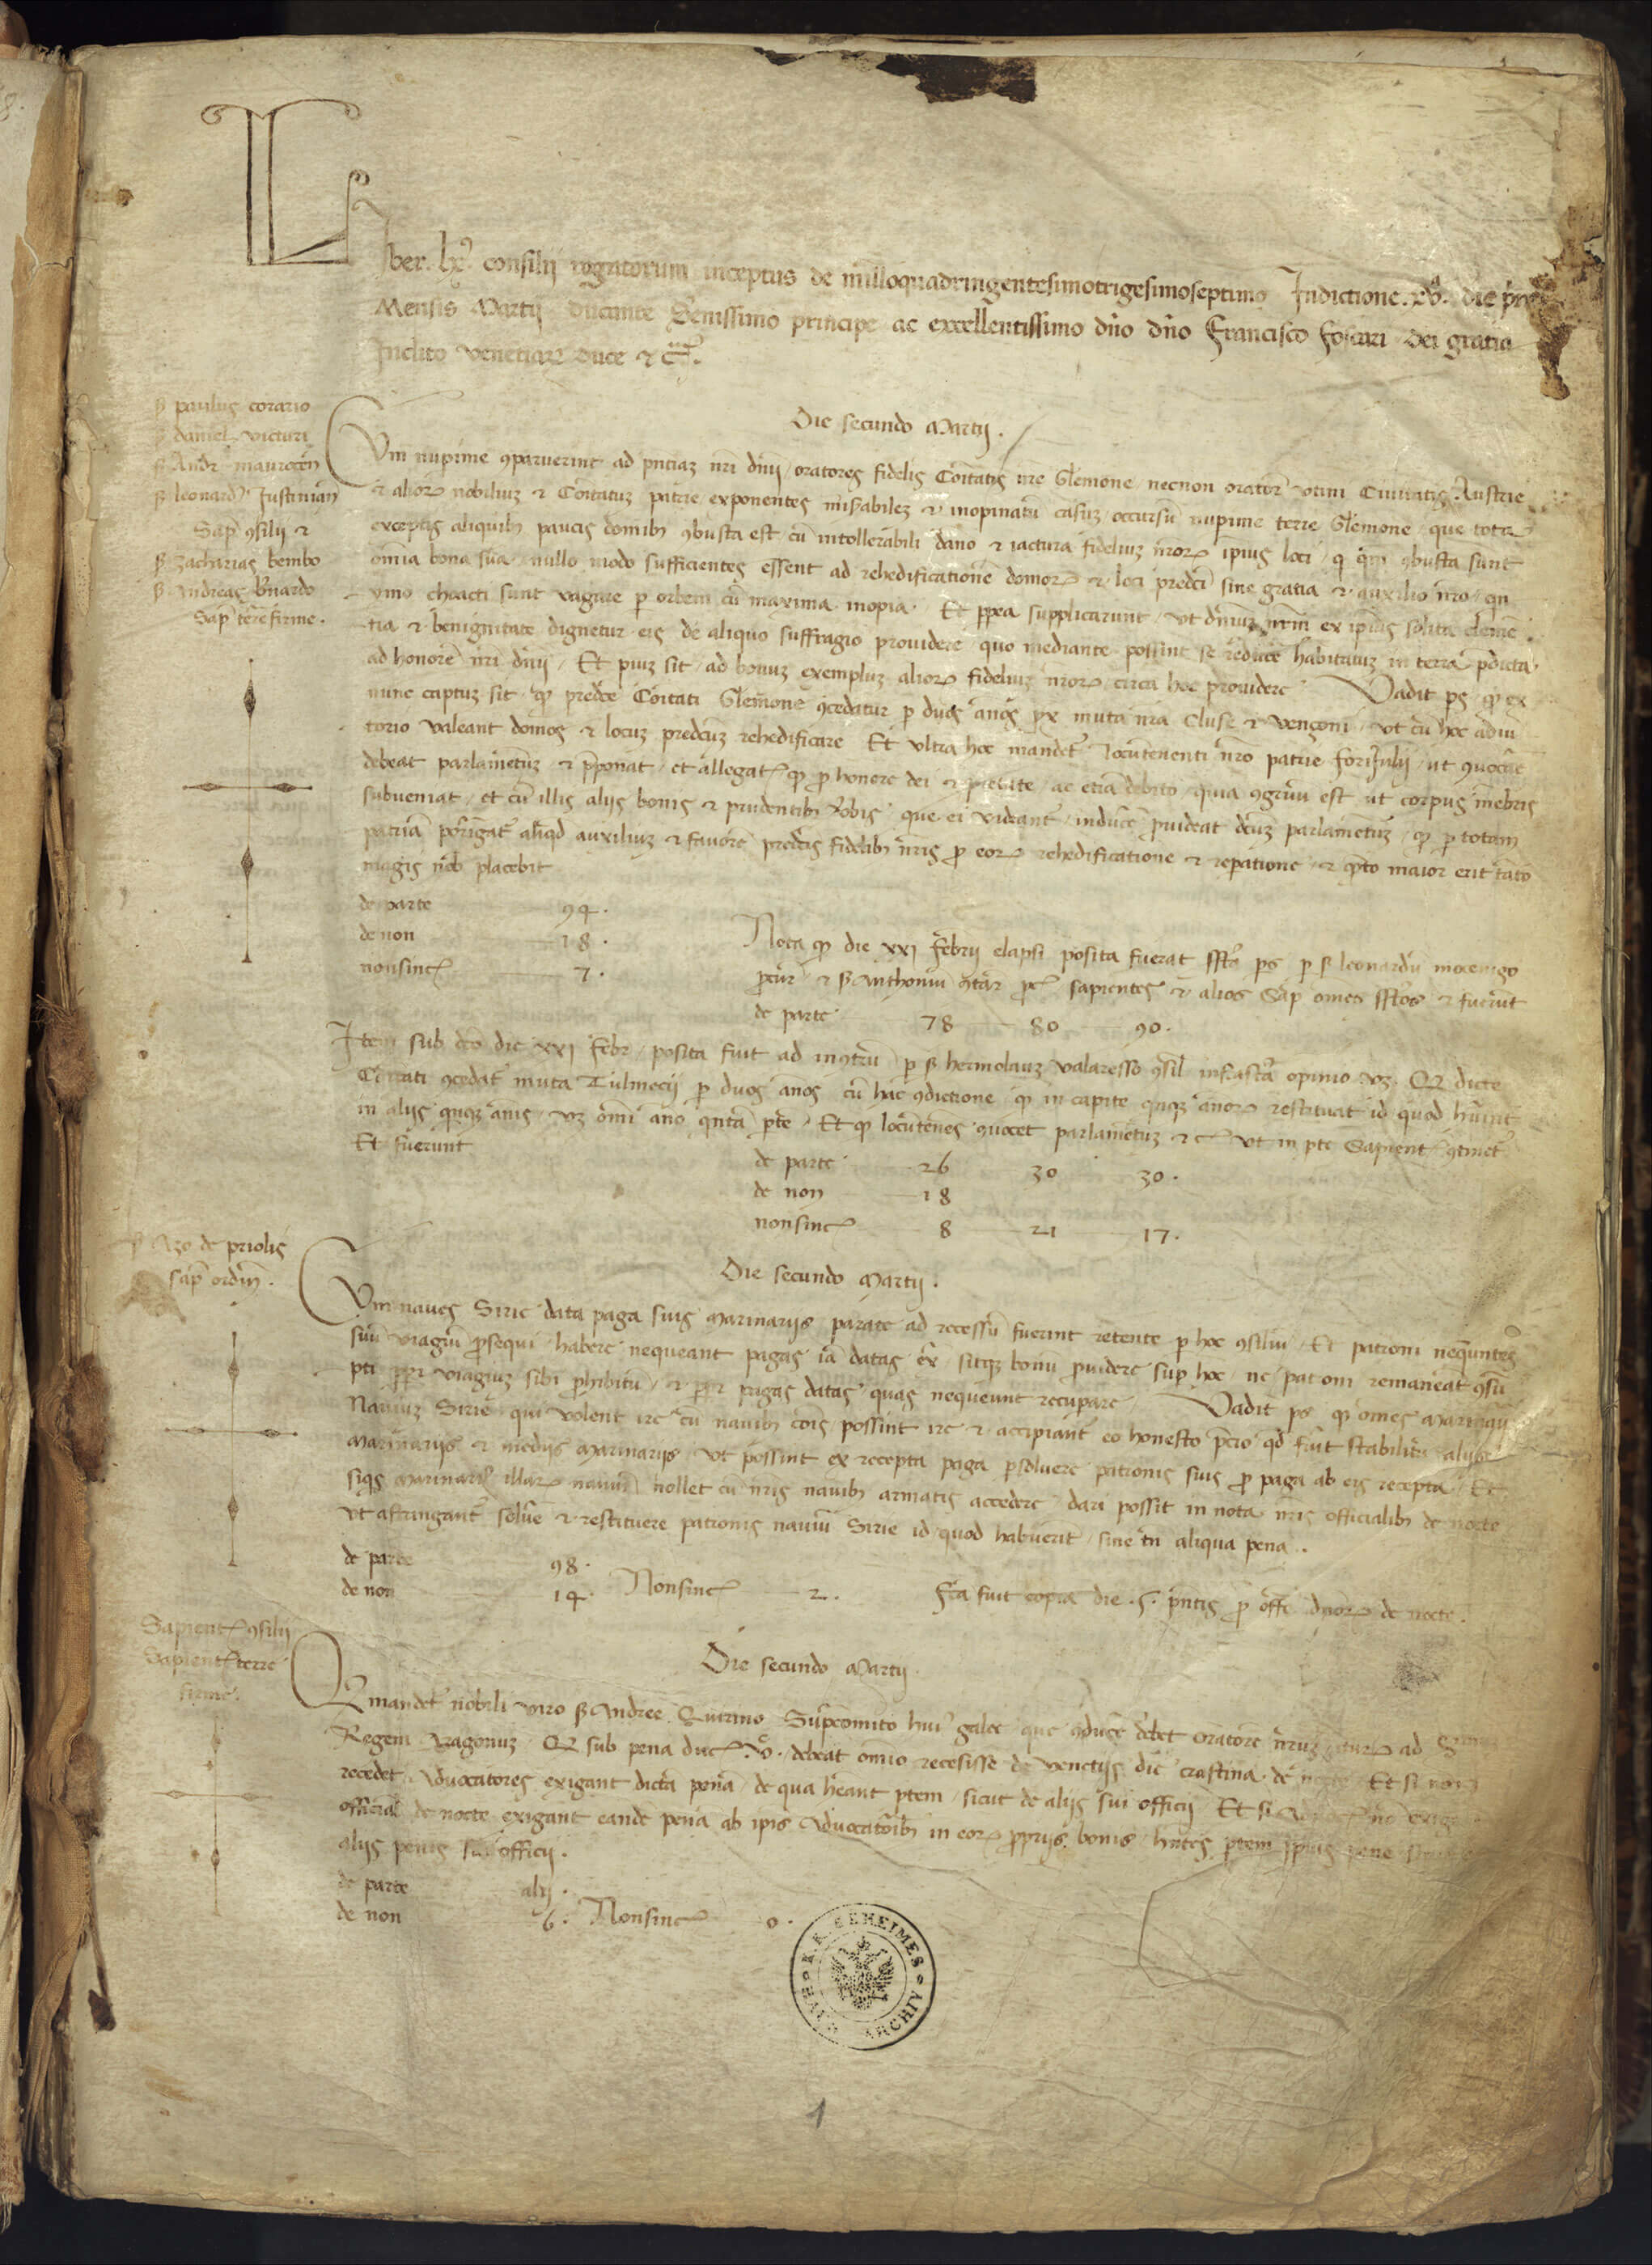 Liber lx consilii rogatorum inceptus de milloquadringentesimotrigesimoseptimo Indictione xv. die p̄mo
Mensis Martii ducante Serenissimo principe ac excellentissimo dn̄o dn̄o Francisco foscari dei gratia
Inclito venetiarꝝ duce ⁊ cr̄.
Die secundo Martij.
ẜ paulus corario
ẜ daniel victuri
ẜ Andr̄ maurocen̄
ẜ leonard Iustinian̄
Sap̄ ꝯsilii ⁊
ẜ Zacharias bembo
ẜ Andreas b̄nardo
Sap̄ terrefirme.
Cum nup̄ime ꝯparuerint ad pn̄tiaꝫ nr̄i dn̄ii oratores fidelis Cōitatis nr̄e Glemone necnon orator̄ vtini Ciuitatis Austrie
⁊ alioꝝ nobiliuꝫ ⁊ Cōitatuꝫ patrie exponentes mis̄abileꝫ ⁊ inopinatū casuꝫ occursuꝫ nup̄ime terre Glemone que tota
exceptis aliquibꝫ paucis domibꝫ ꝯbusta est cū intollerabili dāno ⁊ iactura fideliuꝫ nr̄oꝝ ip̄ius loci q̄ qm̄ ꝯbusta sunt
om̄ia bona sua nullo modo sufficientes essent ad rehedificationē domoꝝ ⁊ loci predc̄i sine gratia ⁊ auxilio nr̄o qn
ymo choacti sunt vagare p orbem cū maxima inopia Et pp̄ea supplicarunt vt dn̄iuꝫ nr̄m ex ip̄ius solita clemē
tia ⁊ benignitate dignetur eis de aliquo suffragio prouidere quo mediante possint se reducē habitatuꝫ in terra p̄dicta
ad honorē nr̄i dn̄ii Et piuꝫ sit ad bonuꝫ exempluꝫ alioꝝ fideliuꝫ nr̄oꝝ circa hoc prouidere Vadit ps ꝙ ex
nunc captuꝫ sit ꝙ predc̄e Cōitati Glemone ꝯcedatur p duos annos px̄ muta nr̄a Cluse ⁊ venconi vt cū hoc adiu
torio valeant domos ⁊ locuꝫ predc̄uꝫ rehedificare Et vltra hoc mandet̄ locūtenenti nr̄o patrie foriJulij ut ꝯuocar̄
debeat parlamentuꝫ ⁊ p̄ponat et allegat̄ ꝙ p honore dei ⁊ pietate ac etiā debito quia ꝯgruū est ut corpus mēbris
subueniat et cū illis aliis bonis ⁊ prudentibꝫ v̄bis que ei videant̄ inducē puideat dc̄uꝫ parlamentuꝫ ꝙ p totam
patriā porrigat̄ aliqd auxiliuꝫ ⁊ fauorē predc̄is fidelibꝫ nr̄is p eoꝝ rehedificatione ⁊ repatione ⁊ qn̄to maior erit tāto
magis nob̄ placebit
de parte 94.
de non 18.
nonsinc̄ 7.
Nota ꝙ die xxj febrij elapsi posita fuerat sst̄a ps p ẜ leonardū mocenigo
pcur̄ ⁊ ẜ Anthoniū ꝯtar̄ pc̄ sapientes ⁊ alios Sap̄ om̄es sst̄os ⁊ fuerūt
de parte 78 80 90.
Item sub dc̄o die xxj febr̄ posita fuit ad inꝯtrū p ẜ hermolauꝫ valaresso ꝯsil̄ infrasc̄ta opinio vꝫ. Q̄ dicte
Cōitati ꝯcedat̄ muta Tulmecij p duos annos cū hac ꝯdictione ꝙ in capite qnqꝫ annoꝝ restituat id quod hūint
in aliis qnqꝫ annis vꝫ omī anno qntā p̄te Et ꝙ locūtenēs ꝯuocet parlamentuꝫ ⁊ c̄ vt in p̄te Sapient̄ ꝯtinet̄
Et fuerunt
de parte 26 30 30.
de non 18
nonsinc̄ 8 21 17.
ẜ Azo de priolis
sap̄ ordin̄.
Die secundo Martij.
Cum naues Sirie data paga suis marinariis parate ad recessū fuerint retente p hoc ꝯsiliū Et patroni neq̄untes
suū viagiū prosequi habere nequeant pagas iā datas eis sitqꝫ bonū puidere sup hoc ne patroni remaneāt ꝯsū
pti pp̄r viagiuꝫ sibi phibitū ⁊ pp̄r pagas datas quas nequeunt recuparē Vadit ps ꝙ om̄es marinarij
Nauiuꝫ Sirie qui volent ire cū nauibꝫ cōis possint ire ⁊ accipiant eo honesto p̄cio qd̄ fuit stabilitū aliis
marinariis ⁊ mediis marinariis vt possint ex recepta paga psoluere patronis suis p paga ab eis recepta Et
siqs marinariꝫ illaꝝ nauiū nollet cū nr̄is nauibꝫ armatis accedere dari possit in nota nr̄is officialibꝫ de nocte
vt astringant̄ soluē ⁊ restituere patronis nauiū Sirie id quod habuerīt sine tn̄ aliqua pena.
de parte 98.
de non 14. Nonsinc̄ 2.
Fc̄a fuit copia die .5. pn̄tis p offo dn̄oꝝ de nocte.
Sapient̄ ꝯsilij
Sapient̄ terre
firme.
Die secundo Martij
Q̄ mandet̄ nobili viro ẜ Andree Quirino Supracomito huiꝰ galee que ꝯducē debet oratorē nr̄uꝫ iturū ad
Regem Ragonuꝫ Q̄ sub pena duc̄ vͨ. debeat om̄io recessisse de venetiis die crastina de nocte Et si non
recedet Aduocatores exigant dictā penā de qua hēant p̄tem sicut de aliis sui officij Et si
official̄ de nocte exigant eandē penā ab ip̄is Aduocatoribꝫ in eoꝝ propriis bonis hn̄tes p̄tem ip̄ius pene
aliis penis sui officij.
de parte alij.
de non 6. Nonsinc̄ 0.
K.K. GEHEIMES
HAUS ARCHIV
1